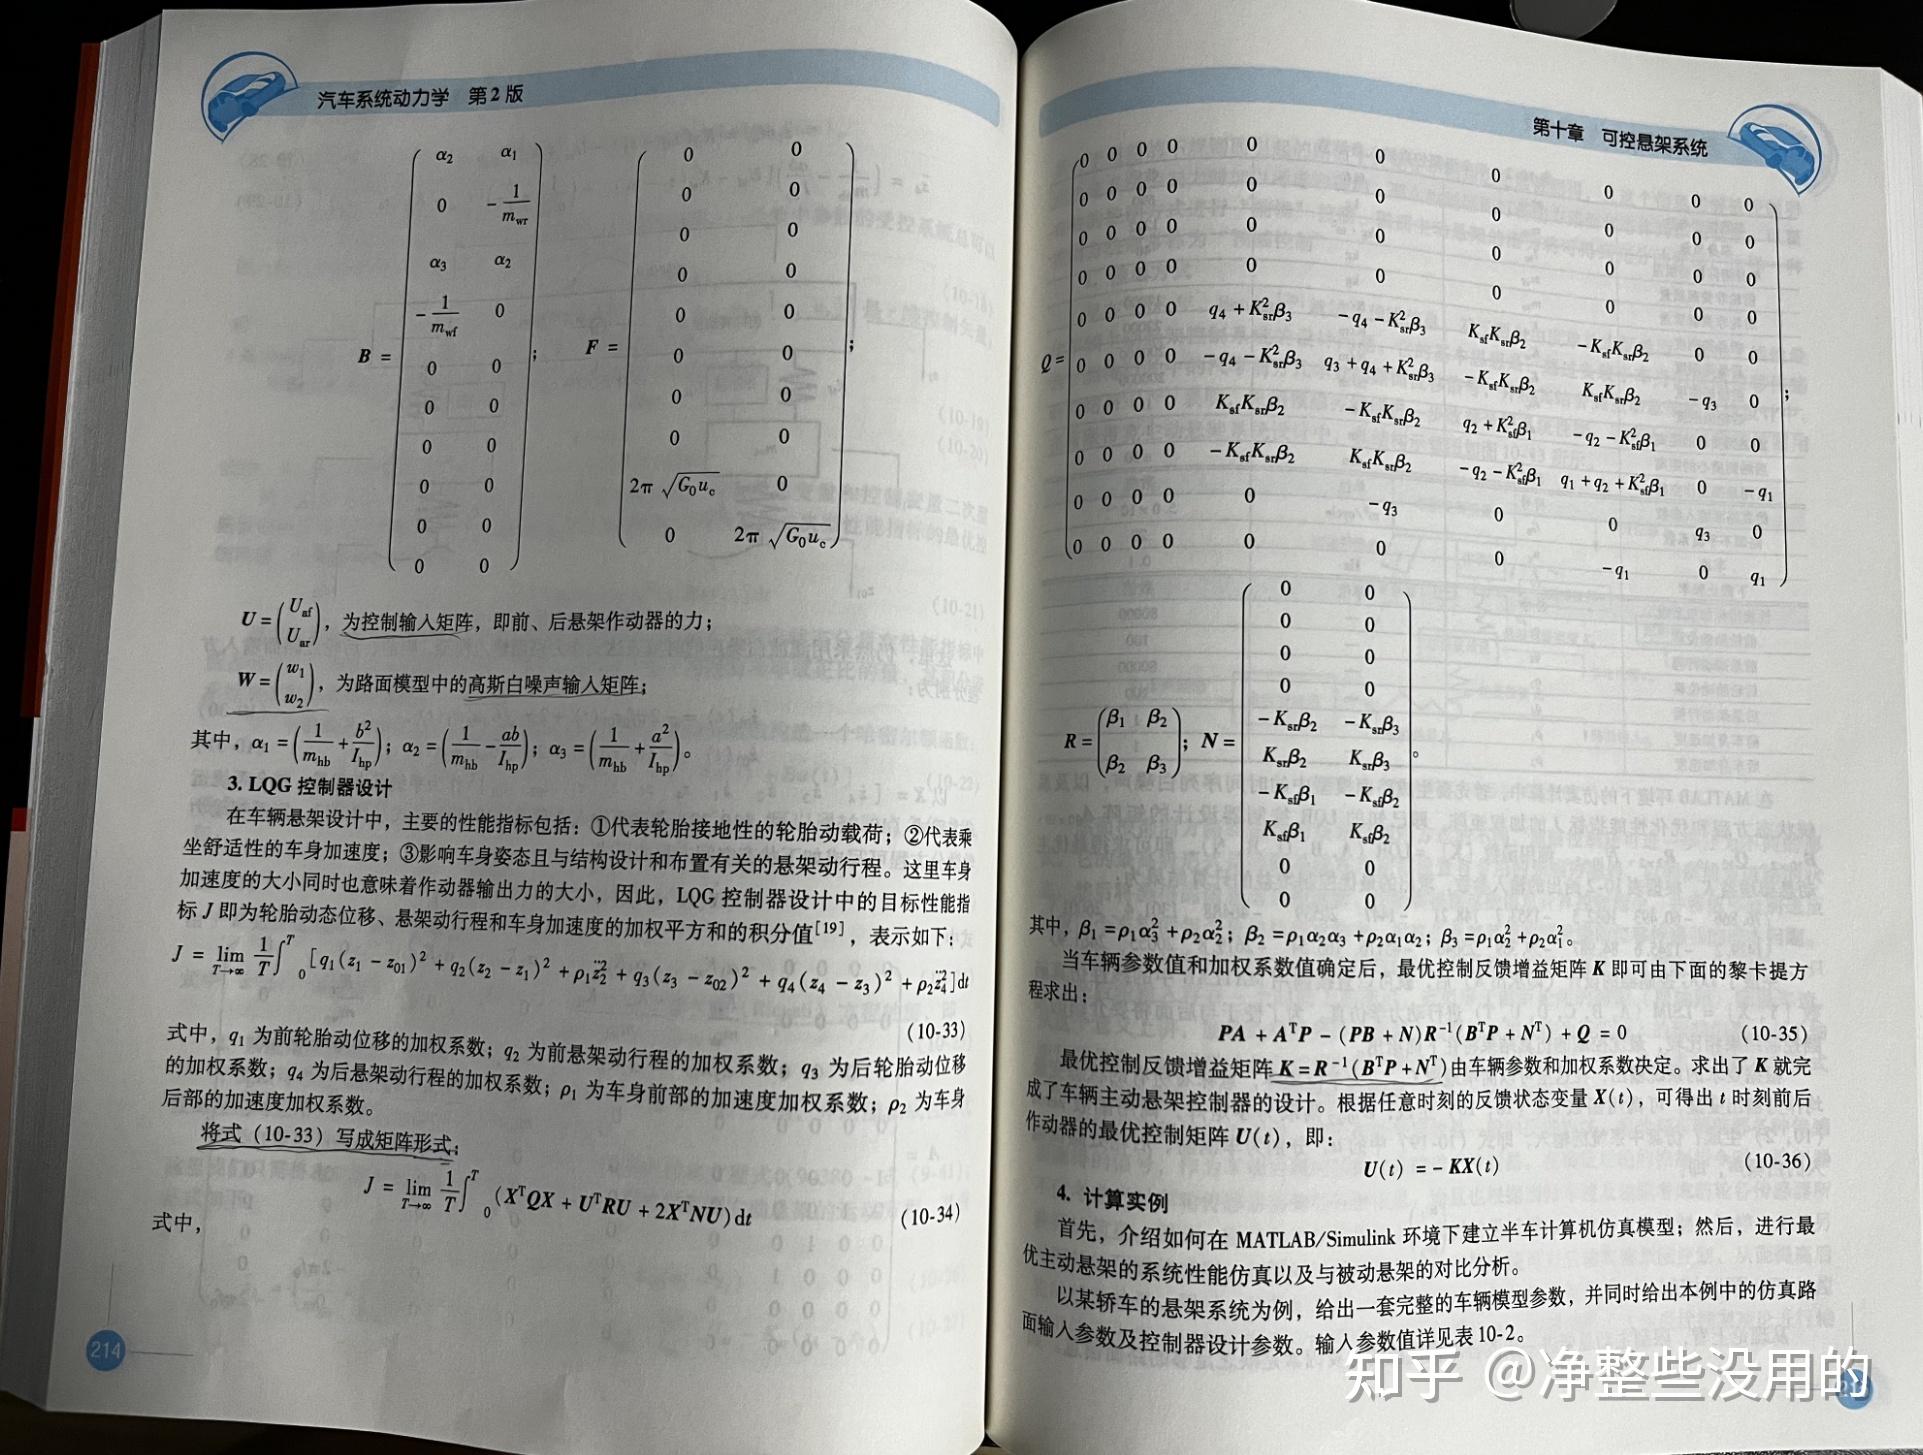 汽车系统动力学 第2版
B = 
α₂ α₁
0 -1/m_wr
α₃ α₂
-1/m_wf 0
0 0
0 0
0 0
0 0
0 0
0 0
;
F = 
0 0
0 0
0 0
0 0
0 0
0 0
0 0
0 0
2π√(G₀u_c) 0
0 2π√(G₀u_c)
;
U = (U_af U_ar), 为控制输入矩阵，即前、后悬架作动器的力；
W = (w₁ w₂), 为路面模型中的高斯白噪声输入矩阵；
其中，α₁ = (1/m_hb + b²/I_hp)；α₂ = (1/m_hb - ab/I_hp)；α₃ = (1/m_hb + a²/I_hp)。
3. LQG 控制器设计
在车辆悬架设计中，主要的性能指标包括：①代表轮胎接地性的轮胎动载荷；②代表乘
坐舒适性的车身加速度；③影响车身姿态且与结构设计和布置有关的悬架动行程。这里车身
加速度的大小同时也意味着作动器输出力的大小，因此，LQG 控制器设计中的目标性能指
标 J 即为轮胎动态位移、悬架动行程和车身加速度的加权平方和的积分值[19]，表示如下：
J = lim_{T→∞} 1/T ∫₀ᵀ [q₁(z₁ - z₀₁)² + q₂(z₂ - z₁)² + ρ₁z̈₂² + q₃(z₃ - z₀₂)² + q₄(z₄ - z₃)² + ρ₂z̈₄²]dt
(10-33)
式中，q₁ 为前轮胎动位移的加权系数；q₂ 为前悬架动行程的加权系数；q₃ 为后轮胎动位移
的加权系数；q₄ 为后悬架动行程的加权系数；ρ₁ 为车身前部的加速度加权系数；ρ₂ 为车身
后部的加速度加权系数。
将式（10-33）写成矩阵形式：
J = lim_{T→∞} 1/T ∫₀ᵀ (XᵀQX + UᵀRU + 2XᵀNU)dt (10-34)
式中，
214
第十章 可控悬架系统
Q = 
0 0 0 0 0 0 0 0 0 0
0 0 0 0 0 0 0 0 0 0
0 0 0 0 0 0 0 0 0 0
0 0 0 0 0 0 0 0 0 0
0 0 0 0 q₄ + K_sr²β₃ -q₄ - K_sr²β₃ K_sfK_srβ₂ -K_sfK_srβ₂ 0 0
0 0 0 0 -q₄ - K_sr²β₃ q₃ + q₄ + K_sr²β₃ -K_sfK_srβ₂ K_sfK_srβ₂ -q₃ 0
0 0 0 0 K_sfK_srβ₂ -K_sfK_srβ₂ q₂ + K_sf²β₁ -q₂ - K_sf²β₁ 0 0
0 0 0 0 -K_sfK_srβ₂ K_sfK_srβ₂ -q₂ - K_sf²β₁ q₁ + q₂ + K_sf²β₁ 0 -q₁
0 0 0 0 0 -q₃ 0 0 q₃ 0
0 0 0 0 0 0 0 -q₁ 0 q₁
;
R = (β₁ β₂
β₂ β₃)；N = 
0 0
0 0
0 0
0 0
-K_srβ₂ -K_srβ₃
K_srβ₂ K_srβ₃
-K_sfβ₁ -K_sfβ₂
K_sfβ₁ K_sfβ₂
0 0
0 0
。
其中，β₁ = ρ₁α₃² + ρ₂α₂²；β₂ = ρ₁α₂α₃ + ρ₂α₁α₂；β₃ = ρ₁α₂² + ρ₂α₁²。
当车辆参数值和加权系数值确定后，最优控制反馈增益矩阵 K 即可由下面的黎卡提方
程求出：
PA + AᵀP - (PB + N)R⁻¹(BᵀP + Nᵀ) + Q = 0 (10-35)
最优控制反馈增益矩阵 K = R⁻¹(BᵀP + Nᵀ) 由车辆参数和加权系数决定。求出了 K 就完
成了车辆主动悬架控制器的设计。根据任意时刻的反馈状态变量 X(t)，可得出 t 时刻前后
作动器的最优控制矩阵 U(t)，即：
U(t) = -KX(t) (10-36)
4. 计算实例
首先，介绍如何在 MATLAB/Simulink 环境下建立半车计算机仿真模型；然后，进行最
优主动悬架的系统性能仿真以及与被动悬架的对比分析。
以某轿车的悬架系统为例，给出一套完整的车辆模型参数，并同时给出本例中的仿真路
面输入参数及控制器设计参数。输入参数值详见表 10-2。
知乎 @净整些没用的